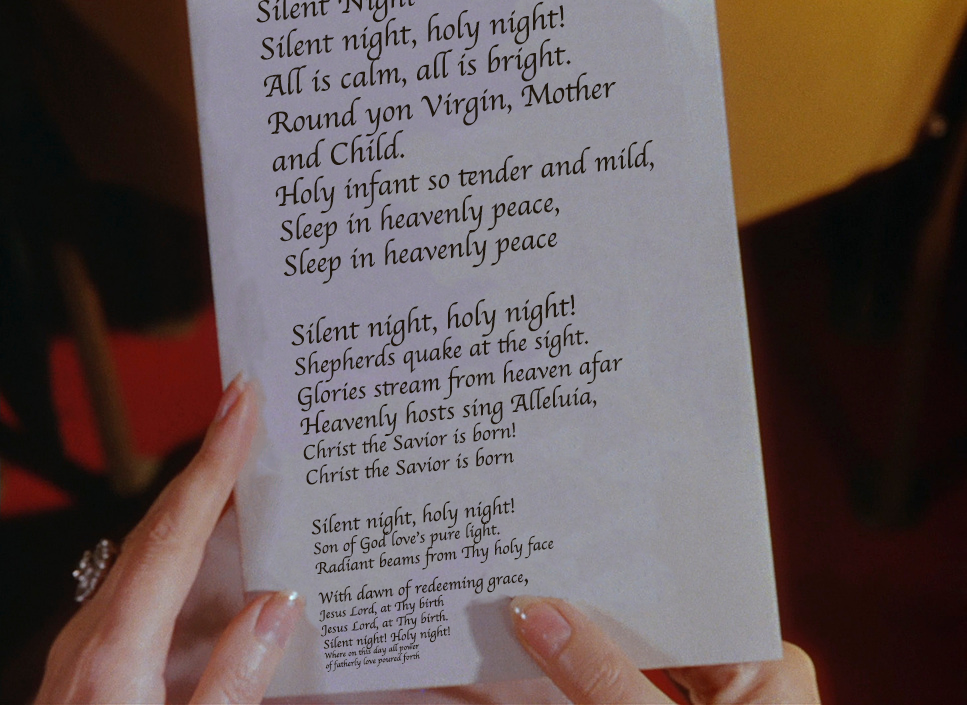 Silent Night
Silent night, holy night!
All is calm, all is bright.
Round yon Virgin, Mother
and Child.
Holy infant so tender and mild,
Sleep in heavenly peace,
Sleep in heavenly peace
Silent night, holy night!
Shepherds quake at the sight.
Glories stream from heaven afar
Heavenly hosts sing Alleluia,
Christ the Savior is born!
Christ the Savior is born
Silent night, holy night!
Son of God love's pure light.
Radiant beams from Thy holy face
With dawn of redeeming grace,
Jesus Lord, at Thy birth
Jesus Lord, at Thy birth.
Silent night! Holy night!
Where on this day all power
of fatherly love poured forth